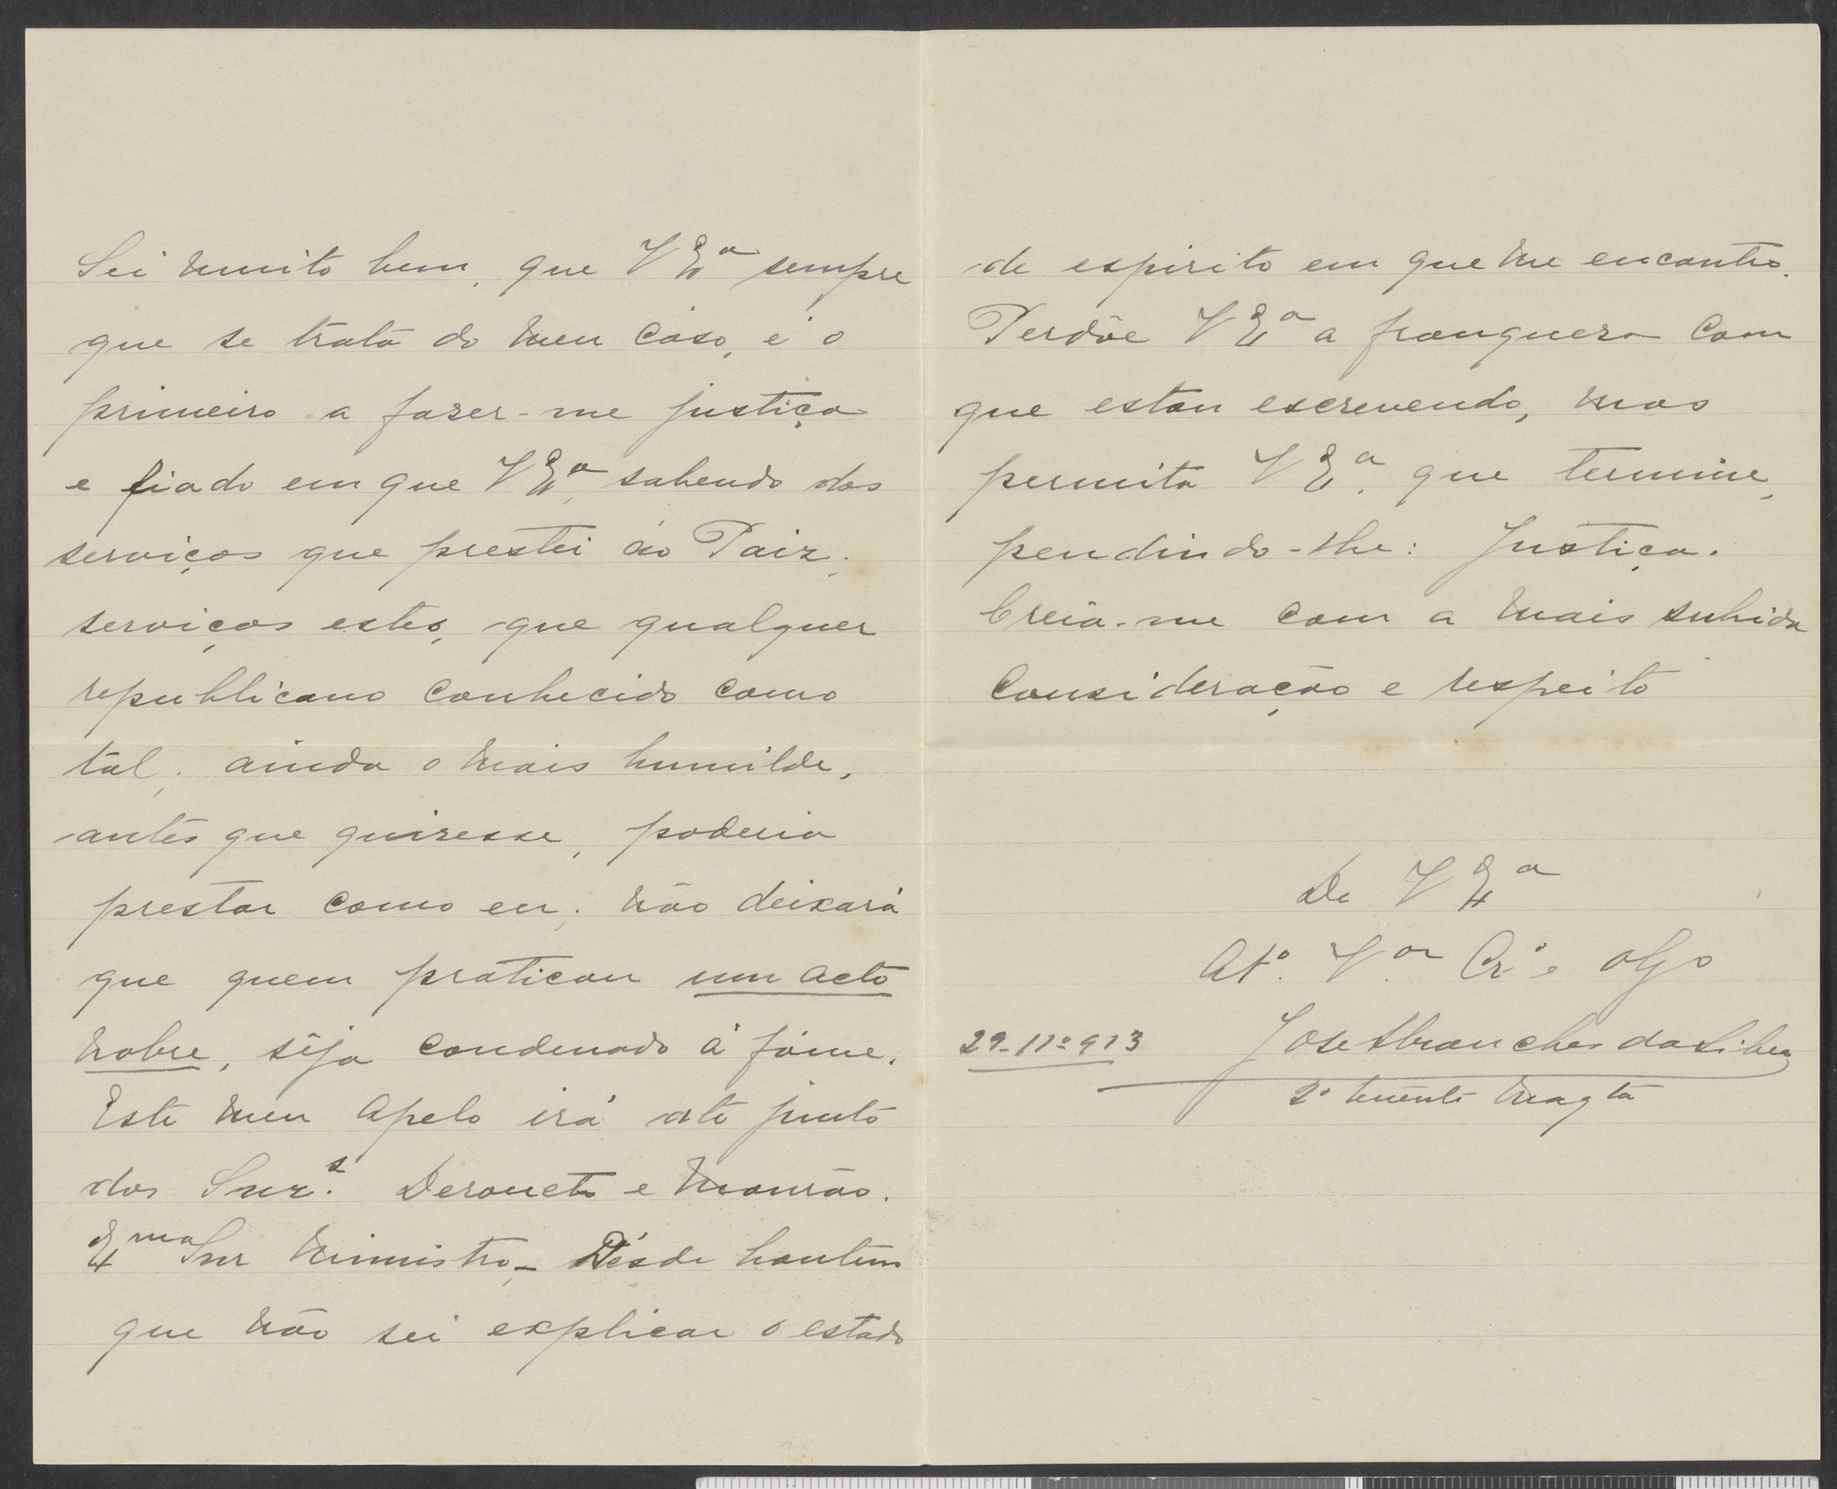 Sei muito bem, que V Exª sempre
que se trata do meu caso, é o
primeiro a fazer-me justiça
e fiado em que V Exª, sabendo dos
serviços que prestei ao Paiz,
serviços estes, que qualquer
republicano conhecido como
tal, ainda o mais humilde,
antes que quizesse, poderia
prestar como eu, não deixará
que quem praticou um acto
nobre, seja condenado á fóme.
Este meu apelo irá até junto
dos Snrs. Derouet e Mourão.
Exmo Snr Ministro,- Désde hontem
que não sei explicar o estado
de espirito em que me encontro.
Perdôe V Exª a franqueza com
que estou escrevendo, mas
permita V Exª, que termine,
pendindo-lhe: Justiça.
Creia-me com a mais subida
consideração e respeito
De V Exª
Atº. Vor Crº e Obgo
29-11º-913 José Abranches da Silva
2º tenente Magta